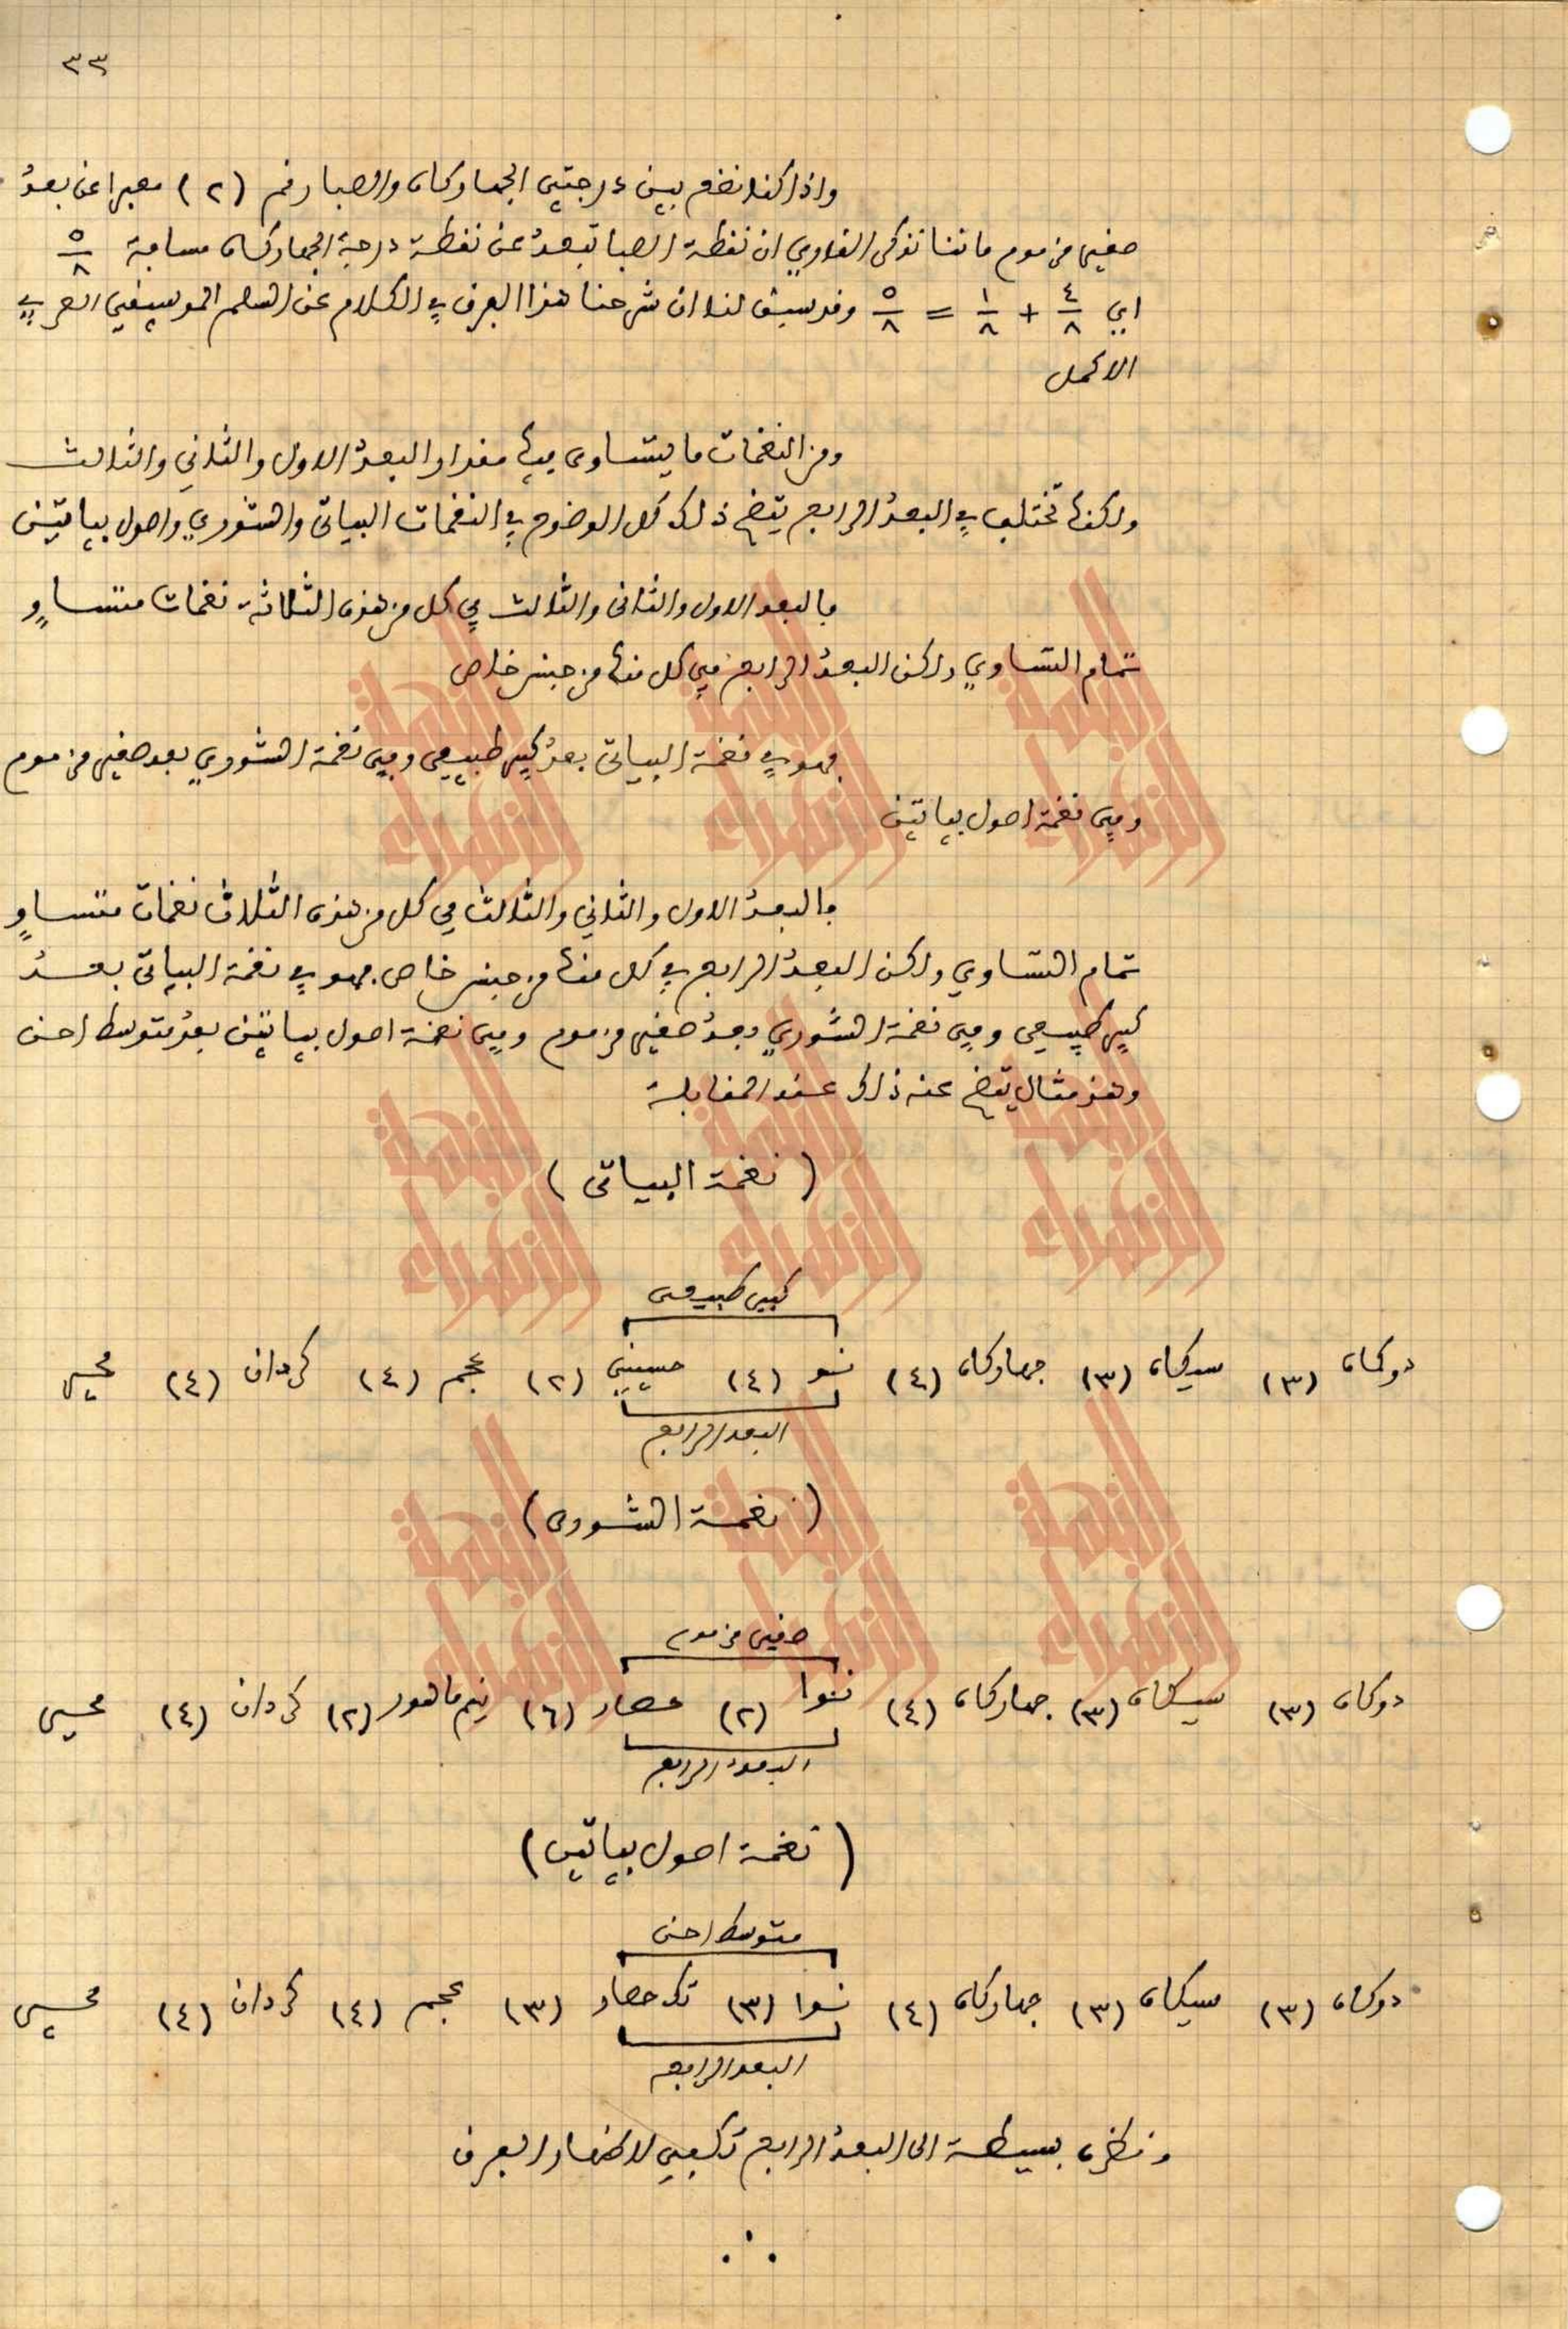 ٣٣
واذا كنا نضع بين درجتي الجهاركاه والصبا رقم (٢) معبرا عن بعدُ
صغير مزموم فاننا نذكر القاري ان نقطة الصبا تبعدُ عن نقطة درجة الجهاركاه مسافة ٥/٨
اي ٤/٨ + ١/٨ = ٥/٨ وقد سبق لنا ان شرحنا هذا الفرق في الكلام عن السلم الموسيقي العربي
الاكمل
ومن النغمات ما يتساوى فيها مقدار البعدُ الاول والثاني والثالث
ولكنها تختلف في البعدُ الرابع يتضح ذلك كل الوضوح في النغمات البياتي والشوري واصول بياتين
فالبعد الاول والثاني والثالث في كل من هذه الثلاثة نغمات متساوٍ
تمام التساوي ولكن البعدُ الرابع في كل منها من جنس خاص
فهو في نغمة البياتي بعدُ كبير طبيعي وفي نغمة الشوري بعد صغير مزموم
وفي نغمة اصول بياتين
فالبعدُ الاول والثاني والثالث في كل من هذه الثلاث نغمات متساوٍ
تمام التساوي ولكن البعدُ الرابع في كل منها من جنس خاص. فهو في نغمة البياتي بعدُ
كبير طبيعي وفي نغمة الشوري بعدُ صغير مزموم وفي نغمة اصول بياتين بعدُ متوسط احن
وهذ مثال يتضح عنه ذلك عند المقابلة
( نغمة البياتي )
كبير طبيعي
دوكاه (٣) سيكاه (٣) جهاركاه (٤) نوا (٤) حسيني (٢) عجم (٤) كردان (٤) محير
البعد الرابع
( نغمة الشورى )
صغير مزموم
دوكاه (٣) سيكاه (٣) جهاركاه (٤) نوا (٢) حصار (٦) نيم ماهور (٢) كردان (٤) محير
البعدُ الرابع
( نغمة اصول بياتين )
متوسط احن
دوكاه (٣) سيكاه (٣) جهاركاه (٤) نوا (٣) تك حصار (٣) عجم (٤) كردان (٤) محير
البعد الرابع
ونظره بسيطة الى البعدُ الرابع تكفي لاظهار الفرق